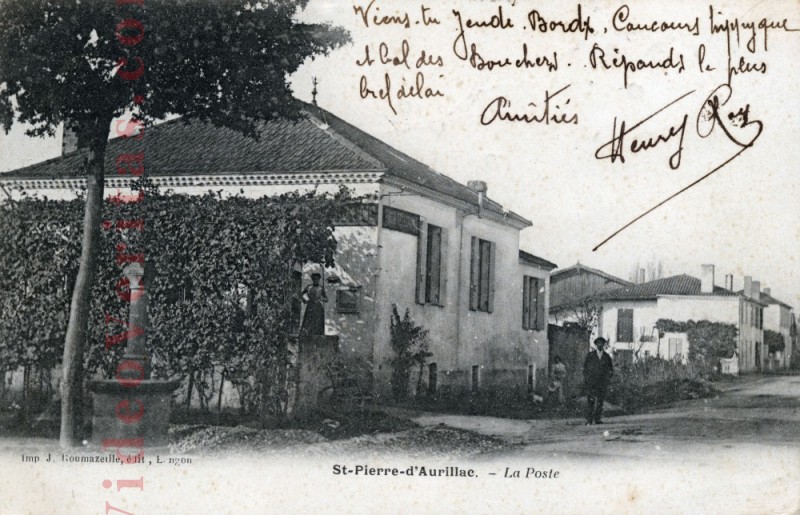 Viens-tu Jeudi. Bordx. Concours hippyque
et bal des Bouchers. Réponds le plus
bref délai
Amitiés
Henry Roy
Imp J. Roumazeille, édit, Langon
St-Pierre-d'Aurillac. - La Poste
videoveritas.co